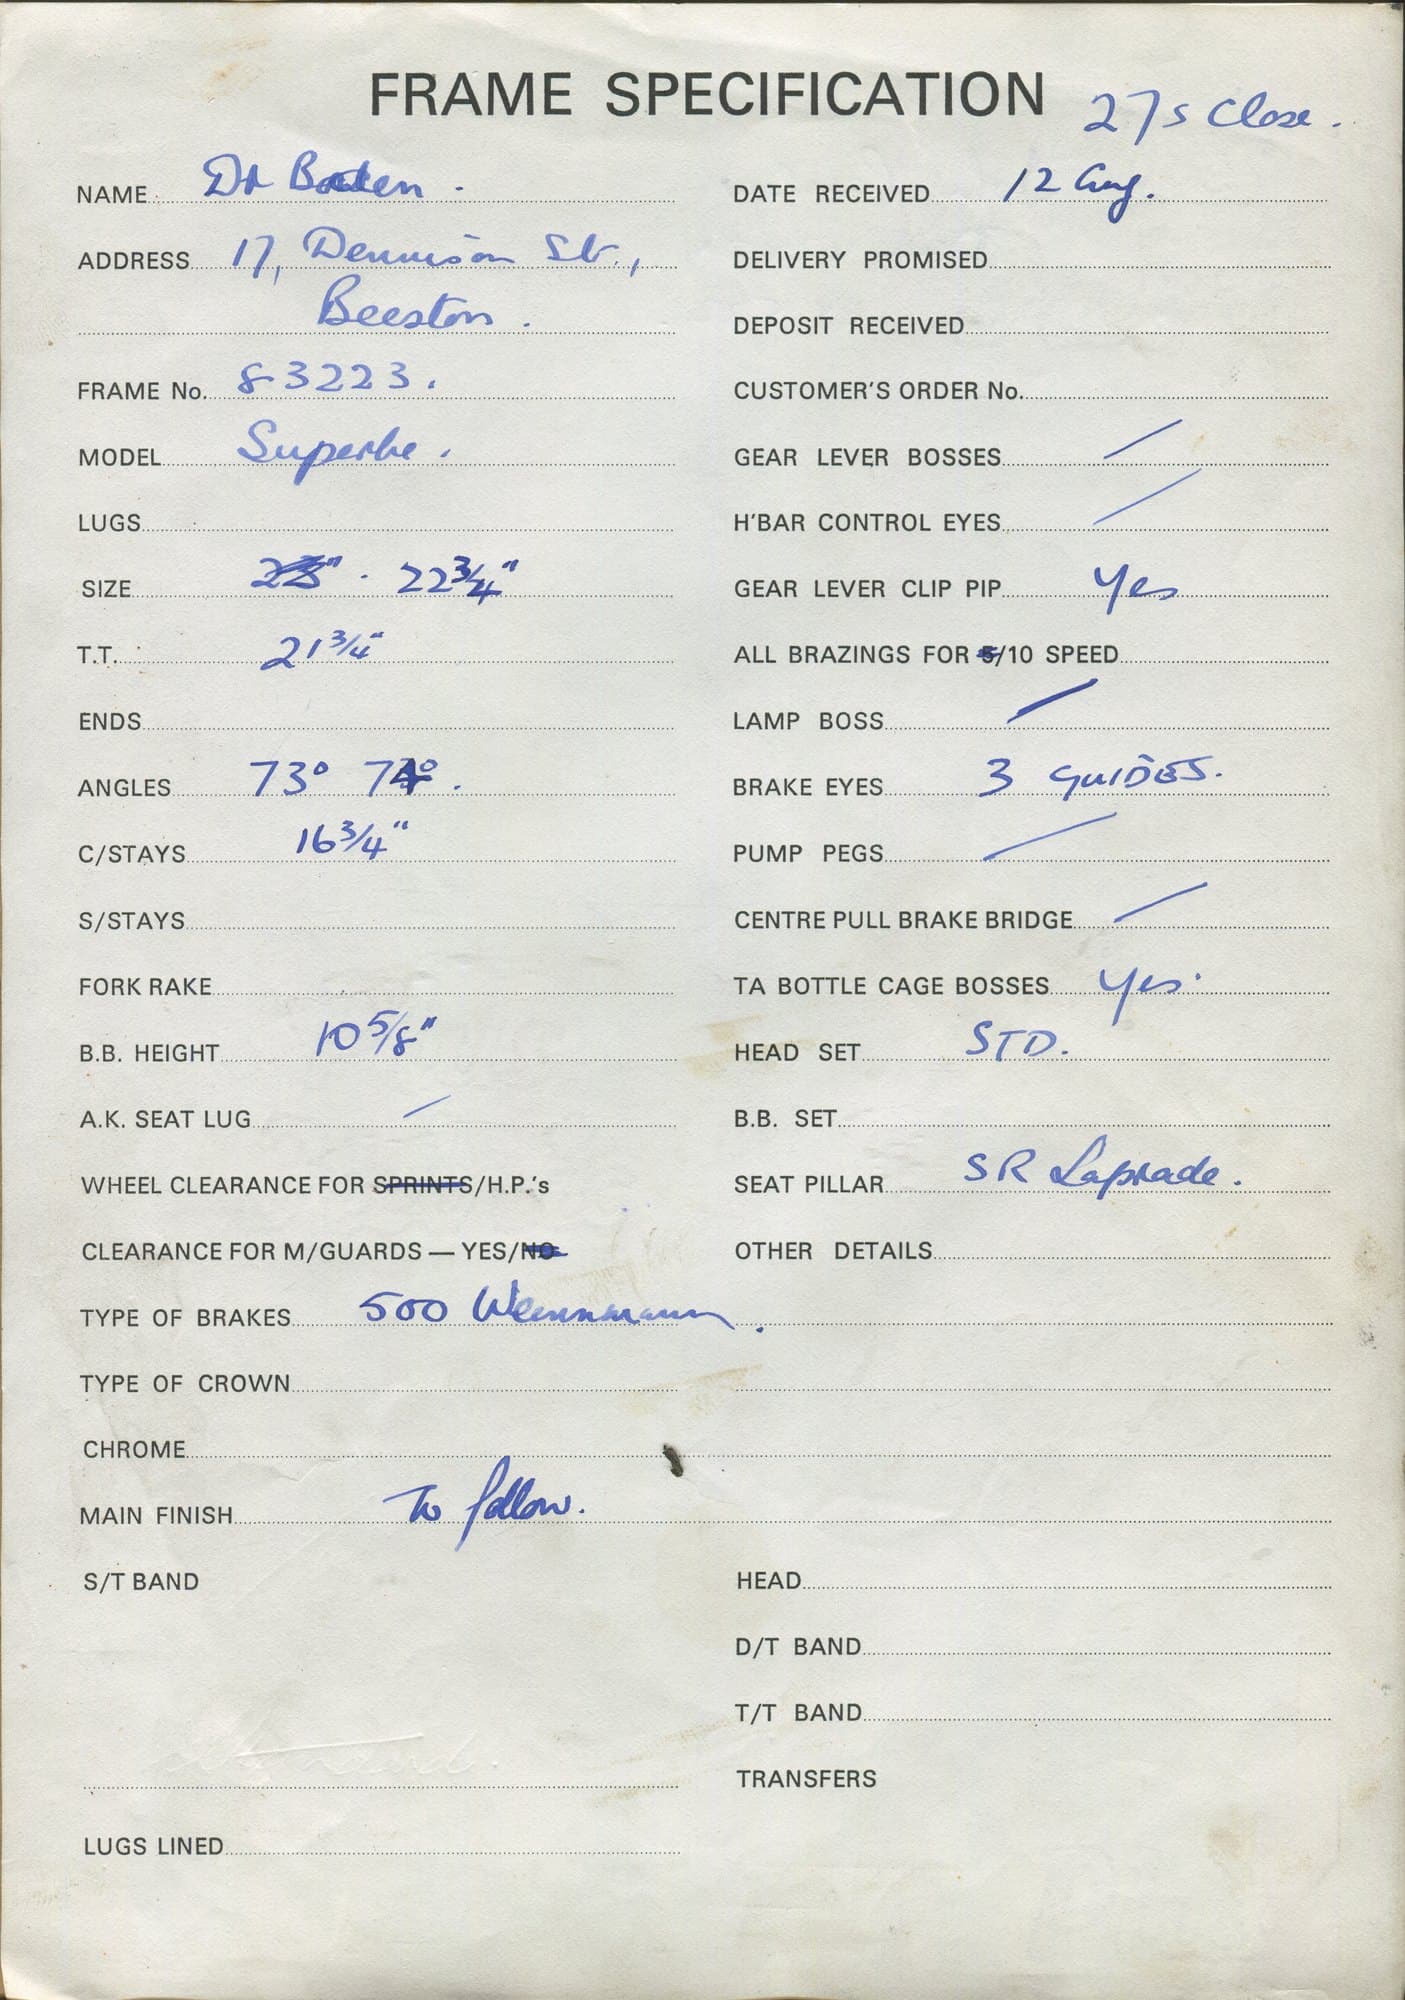 FRAME SPECIFICATION
27s Close.
NAME Dr Boden.
ADDRESS 17, Dennison St.,
Beeston.
FRAME No. 83223.
MODEL Superbe.
LUGS
SIZE 23" . 22 3/4"
T.T. 21 3/4"
ENDS
ANGLES 73° 74°.
C/STAYS 16 3/4"
S/STAYS
FORK RAKE
B.B. HEIGHT 10 5/8"
A.K. SEAT LUG /
WHEEL CLEARANCE FOR SPRINTS/H.P.'s
CLEARANCE FOR M/GUARDS — YES/NO
TYPE OF BRAKES 500 Weinmann.
TYPE OF CROWN
CHROME
MAIN FINISH To follow.
S/T BAND
LUGS LINED
DATE RECEIVED 12 Aug.
DELIVERY PROMISED
DEPOSIT RECEIVED
CUSTOMER'S ORDER No.
GEAR LEVER BOSSES /
H'BAR CONTROL EYES /
GEAR LEVER CLIP PIP Yes
ALL BRAZINGS FOR 5/10 SPEED
LAMP BOSS /
BRAKE EYES 3 GUIDES.
PUMP PEGS /
CENTRE PULL BRAKE BRIDGE /
TA BOTTLE CAGE BOSSES Yes.
HEAD SET STD.
B.B. SET
SEAT PILLAR SR Laprade.
OTHER DETAILS
HEAD
D/T BAND
T/T BAND
TRANSFERS